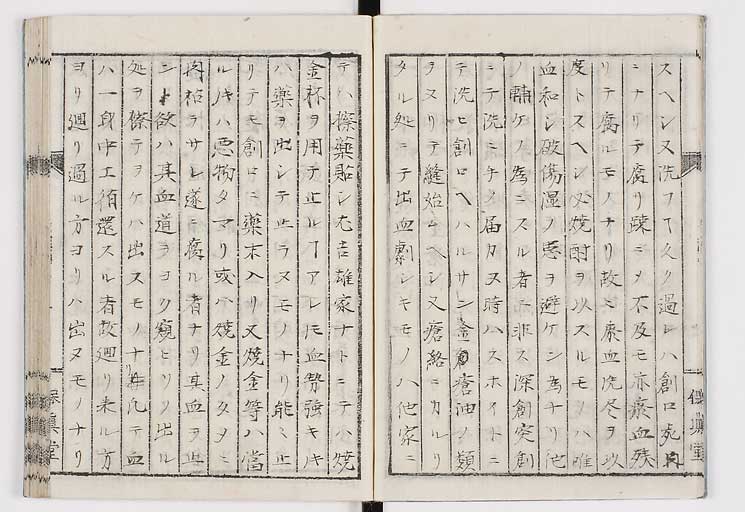 スヘシ又洗フヿ久ク過レハ創口死肉
ニナリテ腐リ踈ニメ不及モ亦瘀血残
リテ腐ルモノナリ故ニ瘀血洗尽ヲ以
度トスヘシ必焼酎ヲ以スルモノハ唯
血和シ破傷湿ノ悪ヲ避ケン為ナリ他
ノ ケノ為ニスル者ニ非ス深創突創
ニテ洗ニクメ届カヌ時ハスホイトニ
テ洗ヒ創口ヘハルサン金瘡油ノ類
ヲヌリテ縫始ムヘシ又瘡絡ニカルリ
タル処ニテ出血劇シキモノハ他家ニ
テハ擦薬貼シ尤吉雄家ナトニテハ焼
金杯ヲ用テ止ルヿアレ𪜈血勢強キ片
ハ薬ヲ出シテ止ラヌモノナリ能ミ止
リテモ創口ニ薬末入リ又焼金等ハ当
ル片ハ悪物タマリ或ハ焼金ノタメニ
枯ヲサレ遂ニ腐ル者ナリ其血ヲ止
ント欲ハ其血道ヲヨク窺ヒソノ出ル
処ヲ除テヲケハ出スモノナリ凡テ血
ハ一身中工循還スル者故廻リ来ル方
ヨリ廻リ過ル方ヨリハ出ヌモノナリ